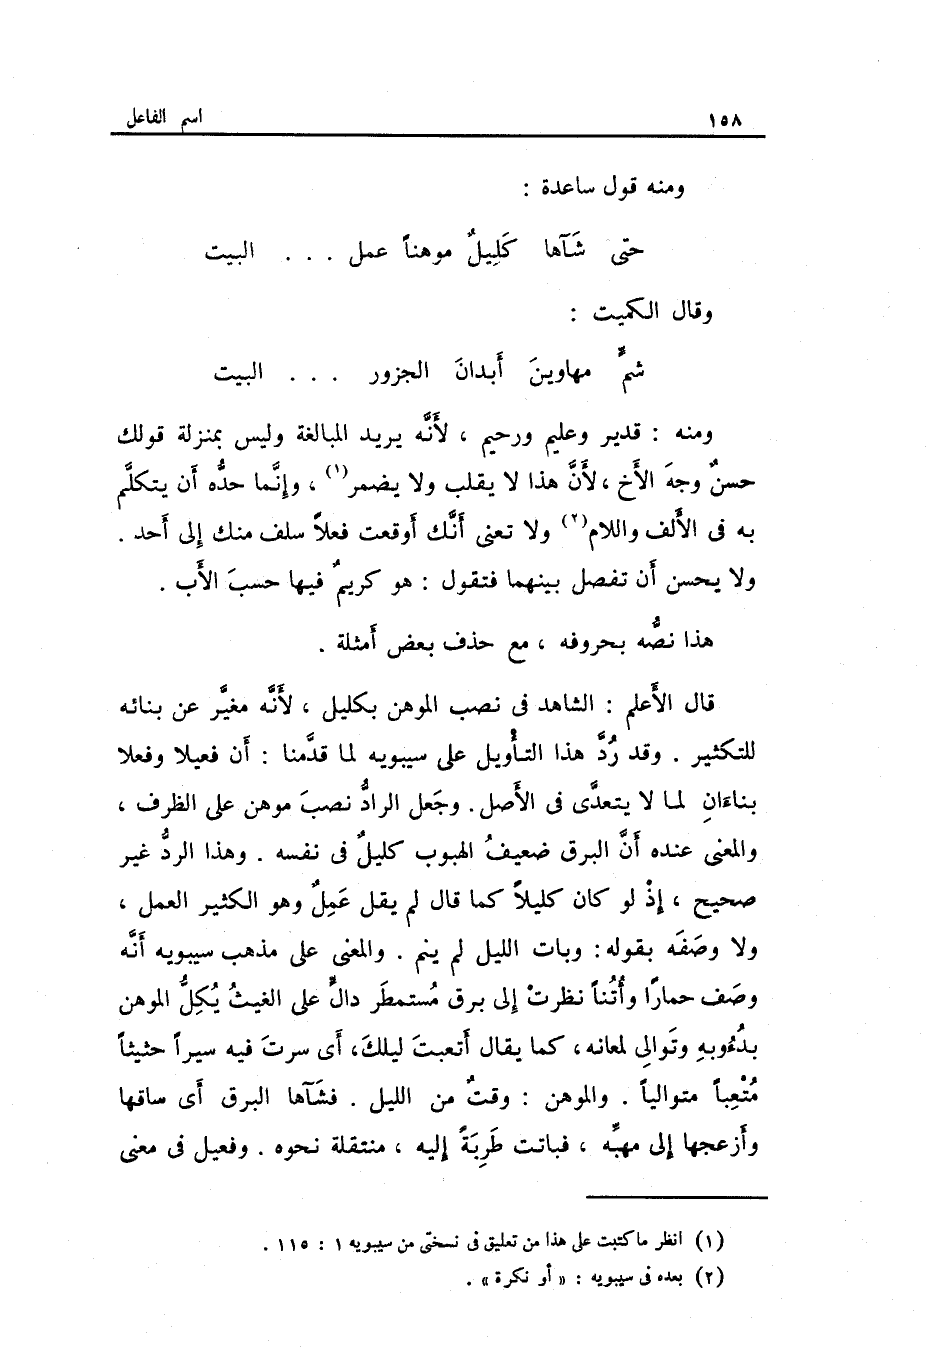 ١٥٨ اسم الفاعل
ومنه قول ساعدة :
حتى شَآها كَلِيلٌ موهناً عمل . . . البيت
وقال الكميت :
شمٌّ مهاوينَ أَبدانَ الجزور . . . البيت
ومنه : قدير وعليم ورحيم ، لأَنَّه يريد المبالغة وليس بمنزلة قولك
حسنٌ وجهَ الأَخ ، لأَنَّ هذا لا يقلب ولا يضمر(١) ، وإنَّما حدُّه أَن يتكلَّم
به فى الأَلف واللام(٢) ولا تعنى أَنَّك أَوقعت فعلاً سلف منك إلى أَحد .
ولا يحسن أَن تفصل بينهما فتقول : هو كريمٌ فيها حسبَ الأَب .
هذا نصُّه بحروفه ، مع حذف بعض أَمثلة .
قال الأَعلم : الشاهد فى نصب الموهن بكليل ، لأَنَّه مغيَّر عن بنائه
للتكثير . وقد رُدَّ هذا التأْويل على سيبويه لما قدَّمنا : أن فعيلا وفعلا
بناءانِ لما لا يتعدَّى فى الأَصل . وجَعل الرادُّ نصبَ موهن على الظرف ،
والمعنى عنده أَنَّ البرق ضعيفُ الهبوب كليلٌ فى نفسه . وهذا الردُّ غير
صحيح ، إذْ لو كان كليلاً كما قال لم يقل عَمِلٌ وهو الكثير العمل ،
ولا وصَفَه بقوله : وبات الليل لم ينم . والمعنى على مذهب سيبويه أَنَّه
وصَف حمارًا وأُتُناً نظرتْ إلى برق مُستمطَر دالٍّ على الغيثُ يُكِلُّ الموهن
بدُءوبهِ وتَوالِى لمعانه ، كما يقال أَتعبتَ ليلكَ ، أَى سرتَ فيه سيراً حثيثاً
مُتْعِباً متوالياً . والموهن : وقتٌ من الليل . فشَآها البرق أَى ساقها
وأَزعجها إلى مهبِّه ، فباتت طَرِبَةً إليه ، منتقلة نحوه . وفعيل فى معنى
(١) انظر ما كتبت على هذا من تعليق فى نسختى من سيبويه ١ : ١١٥ .
(٢) بعده فى سيبويه : « أو نكرة » .